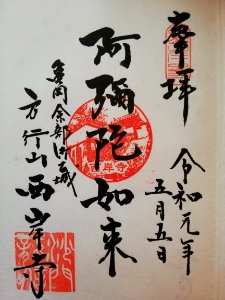 奉拝
令和元年
五月五日
阿彌陀如来
亀岡余部
方行山西岸寺